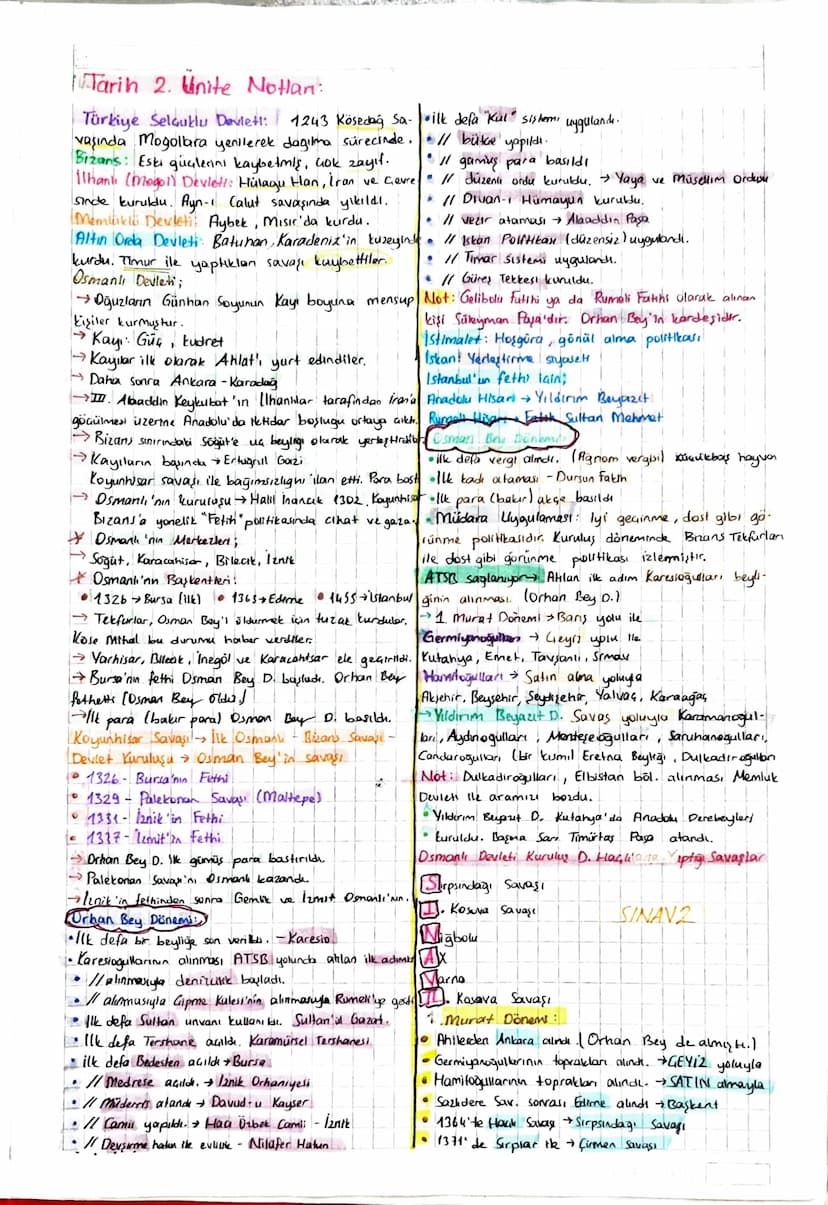 Tarih 2. Ünite Notları:
Türkiye Selçuklu Devleti: 1243 Kösedağ Sa-
vaşında Moğollara yenilerek dağılma sürecinde.
Bizans: Eski güçlerini kaybetmiş, çok zayıf.
İlhanlı (Moğol) Devleti: Hülagu Han, İran ve çevre
sinde kuruldu. Ayn-ı Calut savaşında yıkıldı.
Memlüklü Devleti: Aybek, Mısır'da kurdu.
Altın Orda Devleti: Batuhan, Karadeniz'in kuzeyinde
kurdu. Timur ile yaptıkları savaşı kaybettiler.
Osmanlı Devleti;
→ Oğuzların Günhan Soyunun Kayı boyuna mensup
kişiler kurmuştur.
→ Kayı: Güç, kudret
→ Kayılar ilk olarak Ahlat'ı yurt edindiler.
→ Daha sonra Ankara - Karadağ
→ III. Alaaddin Keykubat'ın İlhanlılar tarafından İran'a
göçülmesi üzerine Anadolu'da iktidar boşluğu ortaya çıktı.
→ Bizans sınırındaki Söğüt'e uç beyliği olarak yerleştirdiler
→ Kayıların başında → Ertuğrul Gazi
Koyunhisar savaşı ile bağımsızlığını ilan etti. Para bast
→ Osmanlı'nın kuruluşu → Halil İnancık 1302 Koyunhisar
Bizans'a yönelik "Fetih" politikasında cihat ve gaza.
* Osmanlı'nın Merkezleri;
→ Söğüt, Karacahisar, Bilecik, İznik
* Osmanlı'nın Başkentleri:
• 1326 → Bursa (ilk) • 1363 → Edirne • 1455 → İstanbul
→ Tekfurlar, Osman Bey'i öldürmek için tuzak kurdular.
Köse Mihal bu durumu haber verdiler.
→ Yarhisar, Bilecik, İnegöl ve Karacahisar ele geçirildi.
→ Bursa'nın fethi Osman Bey D. başladı. Orhan Bey
fethetti (Osman Bey öldü)
→ İlk para (bakır para) Osman Bey D. basıldı.
Koyunhisar Savaşı → İlk Osmanlı - Bizans Savaşı -
Devlet Kuruluşu → Osman Bey'in savaşı
• 1326 - Bursa'nın Fethi
• 1329 - Palekonan Savaşı (Maltepe)
• 1331 - İznik'in Fethi
• 1337 - İzmit'in Fethi
→ Orhan Bey D. ilk gümüş para bastırıldı.
→ Palekonan Savaşı'nı Osmanlı kazandı.
→ İznik'in fethinden sonra Gemlik ve İzmit Osmanlı'nın.
Orhan Bey Dönemi:
• İlk defa bir beyliğe son verildi. - Karesio
• Karesioğullarının alınması ATSB yolunda atılan ilk adımdı
• // alınmasıyla denizcilik başladı.
• // alınmasıyla Çipme Kulesi'nin alınmasıyla Rumeli'ye geçti
• İlk defa Sultan unvanı kullanıldı. Sultan'ül Guzat.
• İlk defa Tershane açıldı. Karamürsel Tershanesi
• ilk defa Bedesten açıldı → Bursa
• // Medrese açıldı. → İznik Orhaniyesi
• // Müderris atandı → Davud-u Kayser
• // Camii yapıldı. → Hacı Özbek Camii - İznik
• // Devşirme hatun ile evlilik - Nilüfer Hatun
• ilk defa "Kul" sistemi uygulandı.
• // bütçe yapıldı.
• // gümüş para basıldı
• // düzenli ordu kuruldu. → Yaya ve Müsellim Ordusu
• // Divan-ı Hümayun kuruldu.
• // Vezir ataması → Alaaddin Paşa
• // İskan Politikası (düzensiz) uygulandı.
• // Tımar sistemi uygulandı.
• // Güreş Tekkesi kuruldu.
Not: Gelibolu fatihi ya da Rumeli Fatihi olarak alınan
kişi Süleyman Paşa'dır. Orhan Bey'in kardeşidir.
İstimalet: Hoşgörü, gönül alma politikası
İskan: Yerleştirme siyaseti
İstanbul'un fethi için;
Anadolu Hisarı → Yıldırım Beyazıt
Rumeli Hisarı → Fatih Sultan Mehmet
Osman Bey Dönemi:
• ilk defa vergi alındı. (Ağnom vergisi) küçükbaş hayvan
• İlk kadı ataması - Dursun Fakih
• İlk para (bakır) akçe basıldı
• Müdara Uygulaması: İyi geçinme, dost gibi gö-
rünme politikasıdır. Kuruluş döneminde Bizans Tekfurları
ile dost gibi görünme politikası izlemiştir.
ATSB sağlanıyor → Atılan ilk adım Karesioğulları beyli-
ğinin alınması. (Orhan Bey D.)
→ 1. Murat Dönemi → Barış yolu ile
Germiyanoğulları → Çeyiz yolu ile
Kütahya, Emet, Tavşanlı, Simav
Hamitoğulları → Satın alma yoluyla
Akşehir, Beyşehir, Seydişehir, Yalvaç, Karaağaç
→ Yıldırım Beyazıt D. Savaş yoluyla Karamanoğul-
ları, Aydınoğulları, Menteşeoğulları, Saruhanoğulları,
Candaroğulları (bir kısmı) Eretna Beyliği, Dulkadiroğulları
Not: Dulkadiroğulları, Elbistan böl. alınması Memluk
Devleti ile aramızı bozdu.
• Yıldırım Beyazıt D. Kütahya'da Anadolu Derebeyleri
• kuruldu. Başına Sarı Timurtaş Paşa atandı.
Osmanlı Devleti Kuruluş D. Haçlılarla Yaptığı Savaşlar
Sırpsındağı Savaşı
I. Kosova Savaşı
SINAV2
Niğbolu
AX
Varna
II. Kosava Savaşı
1. Murat Dönemi:
• Ahilerden Ankara alındı. (Orhan Bey de almıştı.)
• Germiyanoğullerının toprakları alındı. → ÇEYİZ yoluyla
• Hamitoğullarının toprakları alındı. → SATIN almayla
• Sazlıdere Sav. sonrası Edirne alındı → Başkent
• 1364'te Haçlı Savaşı → Sırpsındağı Savaşı
• 1371'de Sırplar ile → Çirmen Savaşı